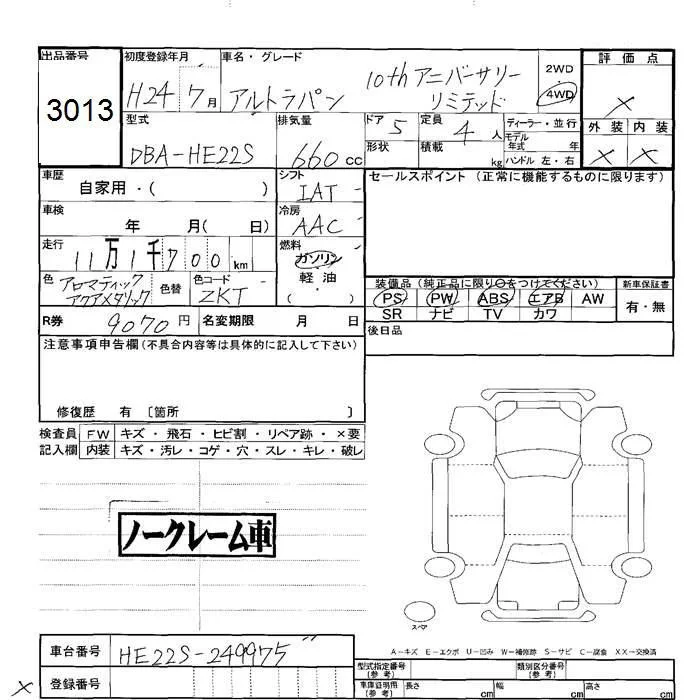 出品番号
3013
初度登録年月
H24 7月
車名・グレード
アルトラパン 10th アニバーサリー
リミテッド
2WD
4WD
評価点
×
外装 内装
× ×
型式
DBA-HE22S
排気量
660 cc
ドア 5
形状
定員 4 人
積載 kg
ディーラー・並行
モデル
年式 年
ハンドル 左・右
車歴
自家用・( )
シフト
IAT
セールスポイント (正常に機能するものに限ります)
車検
年 月( 日)
冷房
AAC
走行
11万1千700 km
燃料
ガソリン
軽油
( )
色 アロマティック
アクアメタリック
色替
色コード
ZKT
装備品(純正品に限り○をつけてください)
PS PW ABS エアB AW
SR ナビ TV カワ
新車保証書
有・無
R券 9070 円
名変期限 月 日
後日品
注意事項申告欄(不具合内容等は具体的に記入して下さい)
修復歴 有 〔箇所 〕
検査員
記入欄
FW キズ・飛石・ヒビ割・リペア跡・×要
内装 キズ・汚レ・コゲ・穴・スレ・キレ・破レ
ノークレーム車
スペア
A-キズ E-エクボ U-凹み W-補修跡 S-サビ C-腐食 XX-交換済
車台番号 HE22S-249975
× 登録番号
型式指定番号
(参考)
類別区分番号
(参考)
車庫証明用
(参考)
長さ cm
幅 cm
高さ cm